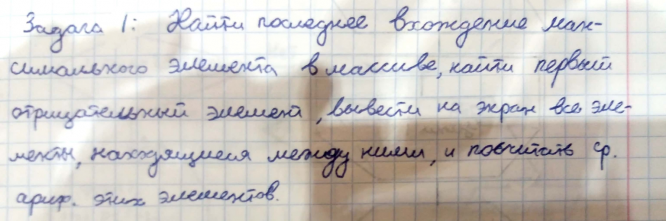 Задача 1: Найти последнее вхождение мак-
симального элемента в массиве, найти первый
отрицательный элемент, вывести на экран все эле-
менты, находящиеся между ними, и посчитать ср.
ариф. этих элементов.